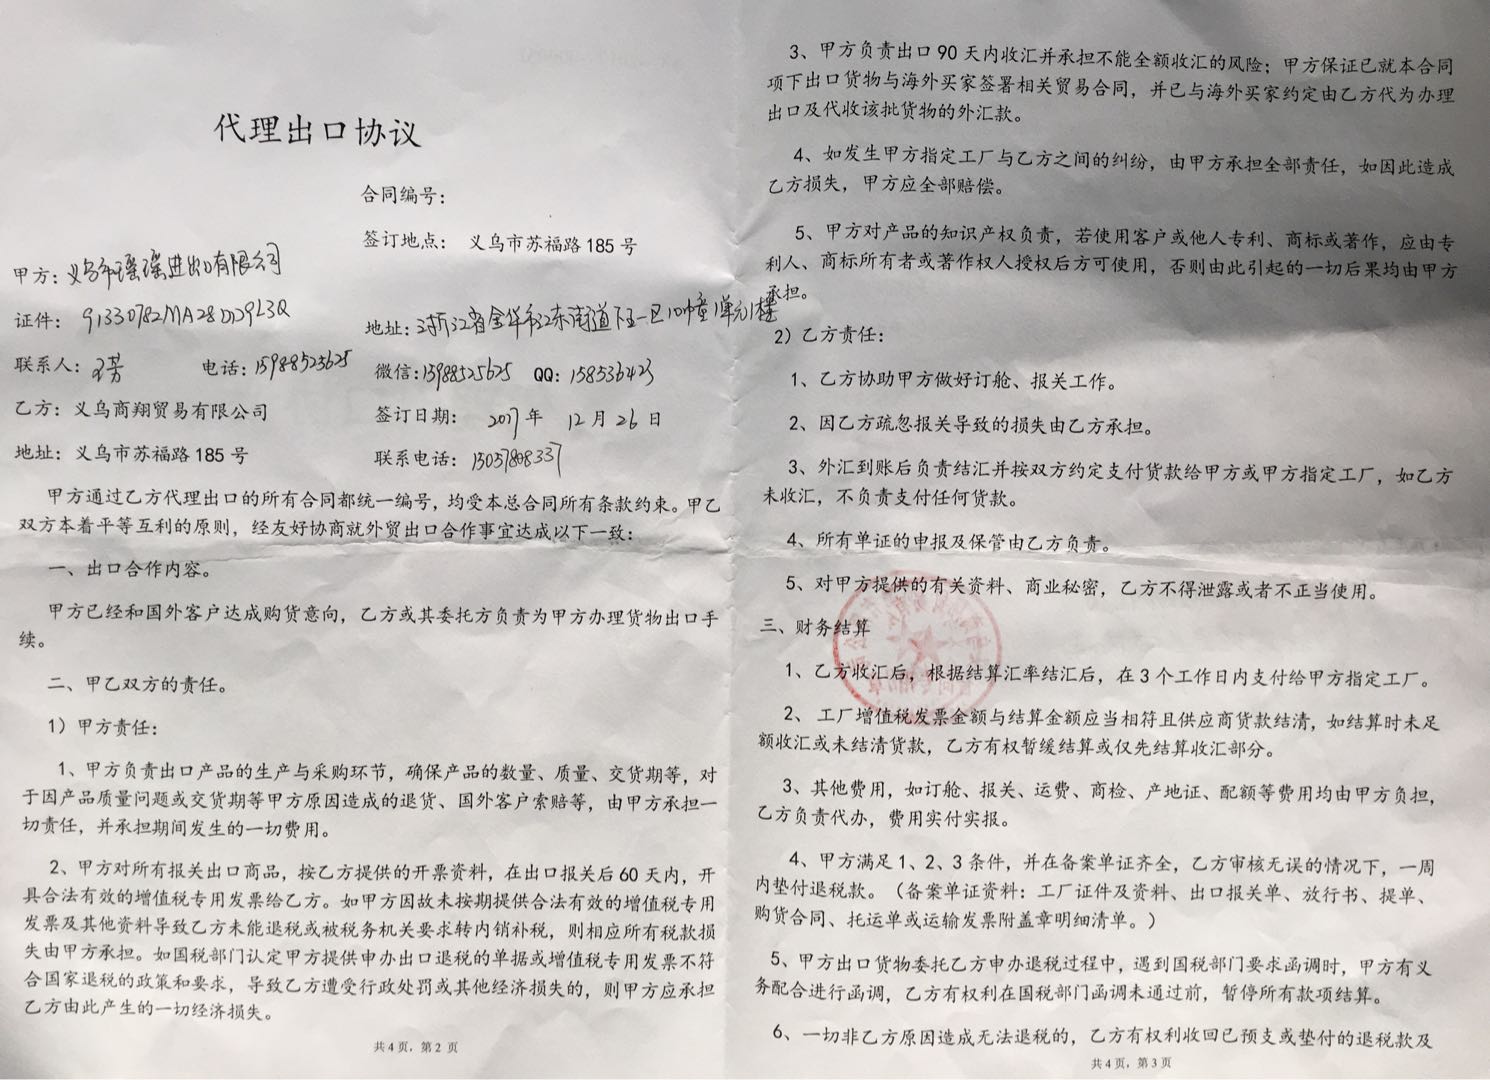 代理出口协议
合同编号：
签订地点： 义乌市苏福路 185 号
甲方：义乌市瑶瑶进出口有限公司
证件： 91330782MA28DD9L3Q
地址：浙江省金华市江东街道下王一区10幢1单元1楼
联系人： 芳 电话：15988525625 微信：15988525625 QQ：158536423
乙方：义乌商翔贸易有限公司 签订日期： 2017 年 12 月 26 日
地址：义乌市苏福路 185 号 联系电话：15057808337
甲方通过乙方代理出口的所有合同都统一编号，均受本总合同所有条款约束。甲乙
双方本着平等互利的原则，经友好协商就外贸出口合作事宜达成以下一致：
一、出口合作内容。
甲方已经和国外客户达成购货意向，乙方或其委托方负责为甲方办理货物出口手
续。
二、甲乙双方的责任。
1）甲方责任：
1、甲方负责出口产品的生产与采购环节，确保产品的数量、质量、交货期等，对
于因产品质量问题或交货期等甲方原因造成的退货、国外客户索赔等，由甲方承担一
切责任，并承担期间发生的一切费用。
2、甲方对所有报关出口商品，按乙方提供的开票资料，在出口报关后 60 天内，开
具合法有效的增值税专用发票给乙方。如甲方因故未按期提供合法有效的增值税专用
发票及其他资料导致乙方未能退税或被税务机关要求转内销补税，则相应所有税款损
失由甲方承担。如国税部门认定甲方提供申办出口退税的单据或增值税专用发票不符
合国家退税的政策和要求，导致乙方遭受行政处罚或其他经济损失的，则甲方应承担
乙方由此产生的一切经济损失。
共 4 页，第 2 页
3、甲方负责出口 90 天内收汇并承担不能全额收汇的风险；甲方保证已就本合同
项下出口货物与海外买家签署相关贸易合同，并已与海外买家约定由乙方代为办理
出口及代收该批货物的外汇款。
4、如发生甲方指定工厂与乙方之间的纠纷，由甲方承担全部责任，如因此造成
乙方损失，甲方应全部赔偿。
5、甲方对产品的知识产权负责，若使用客户或他人专利、商标或著作，应由专
利人、商标所有者或著作权人授权后方可使用，否则由此引起的一切后果均由甲方
承担。
2）乙方责任：
1、乙方协助甲方做好订舱、报关工作。
2、因乙方疏忽报关导致的损失由乙方承担。
3、外汇到账后负责结汇并按双方约定支付货款给甲方或甲方指定工厂，如乙方
未收汇，不负责支付任何货款。
4、所有单证的申报及保管由乙方负责。
5、对甲方提供的有关资料、商业秘密，乙方不得泄露或者不正当使用。
三、财务结算
1、乙方收汇后，根据结算汇率结汇后，在 3 个工作日内支付给甲方指定工厂。
2、 工厂增值税发票金额与结算金额应当相符且供应商货款结清，如结算时未足
额收汇或未结清货款，乙方有权暂缓结算或仅先结算收汇部分。
3、其他费用，如订舱、报关、运费、商检、产地证、配额等费用均由甲方负担，
乙方负责代办，费用实付实报。
4、甲方满足 1、2、3 条件，并在备案单证齐全，乙方审核无误的情况下，一周
内垫付退税款。（备案单证资料：工厂证件及资料、出口报关单、放行书、提单、
购货合同、托运单或运输发票附盖章明细清单。）
5、甲方出口货物委托乙方申办退税过程中，遇到国税部门要求函调时，甲方有义
务配合进行函调，乙方有权利在国税部门函调未通过前，暂停所有款项结算。
6、一切非乙方原因造成无法退税的，乙方有权利收回已预支或垫付的退税款及
共 4 页，第 3 页